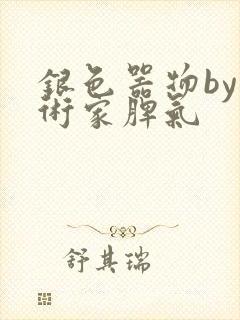 銀色器物by
術家脾氣
舒其瑞